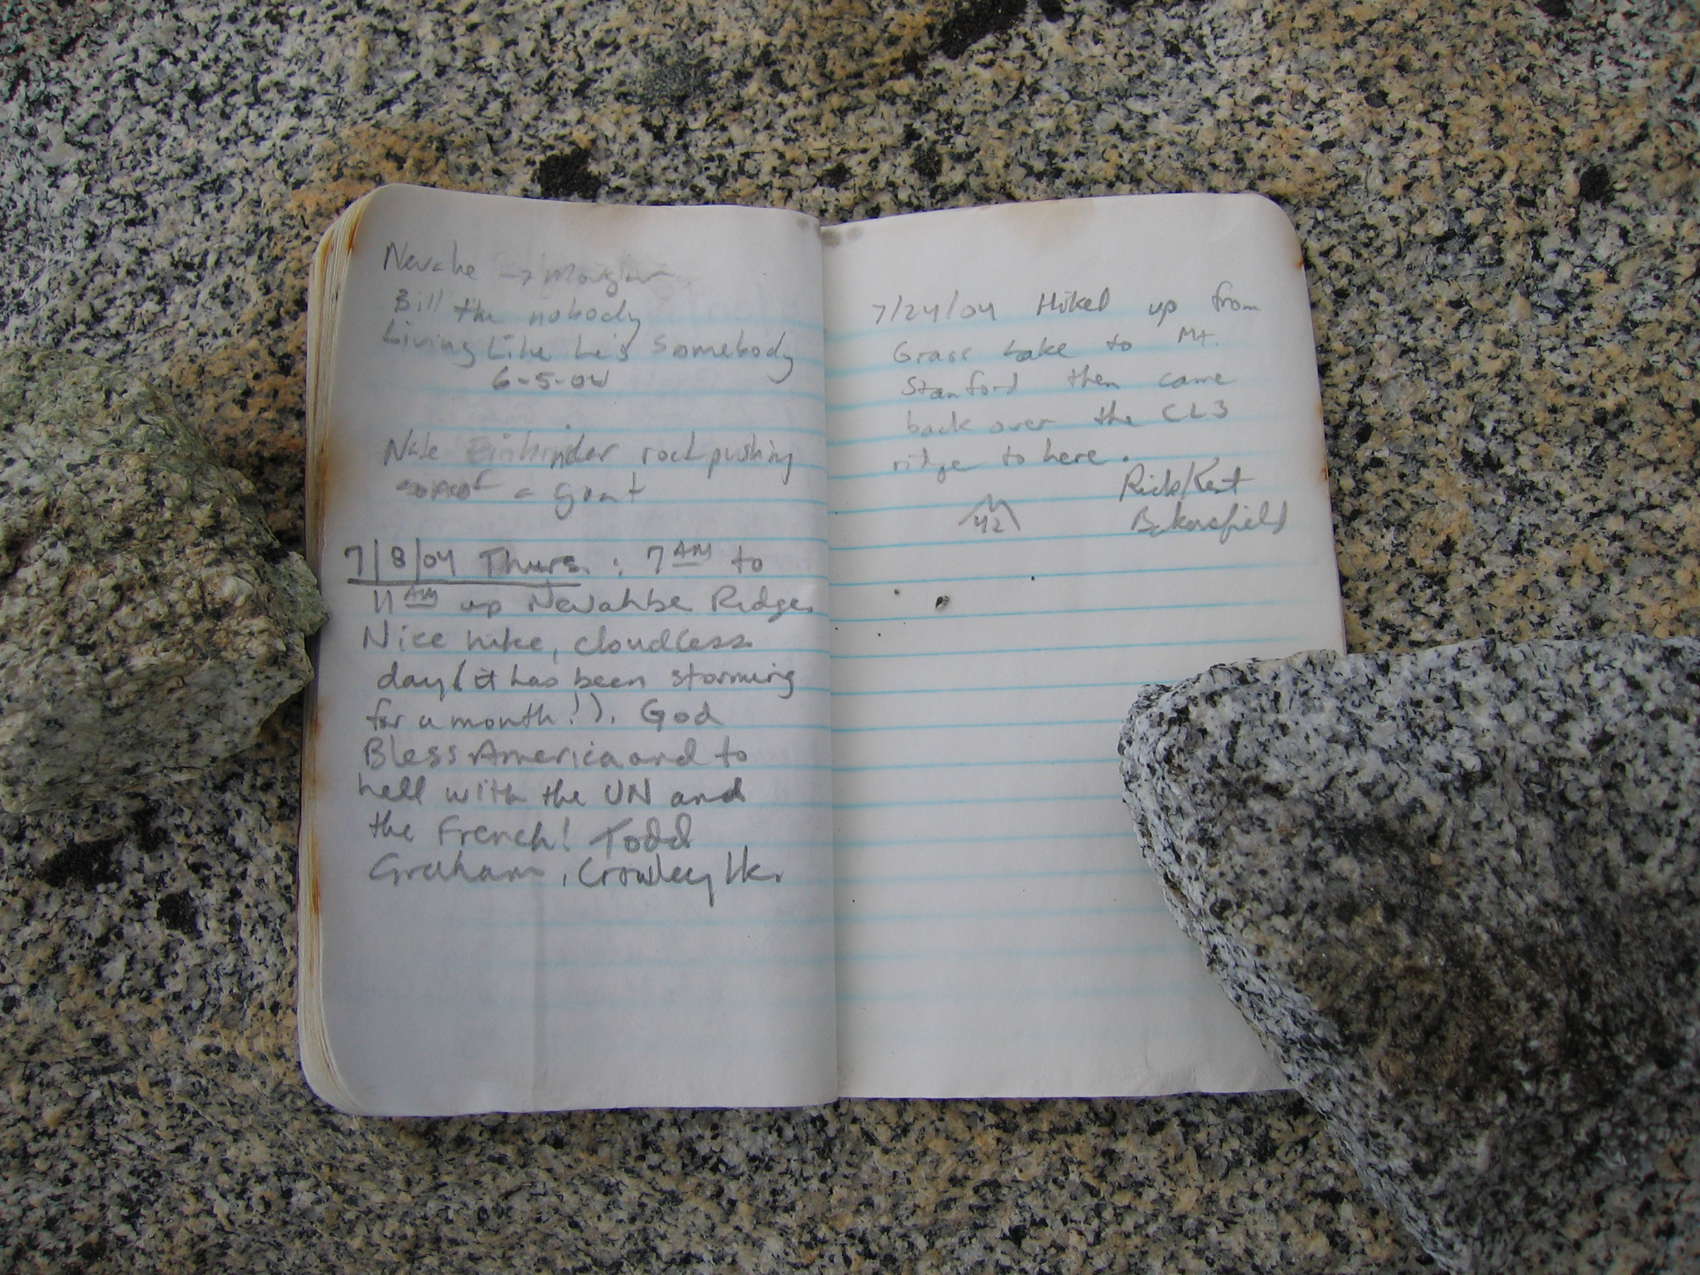 Nevahe → Morgan
Bill the nobody
Living Like he's somebody
6-5-04
Nate rock pushing
goat
7/8/04 Thurs. : 7 AM to
11 AM up Nevahbe Ridge.
Nice hike, cloudless
day (it has been storming
for a month!). God
Bless America and to
hell with the UN and
the French! Todd
Graham, Crowley lk.
7/24/04 Hiked up from
Grass Lake to Mt.
Stanford then came
back over the CL3
ridge to here.
Rick/Kent
42 Bakersfield